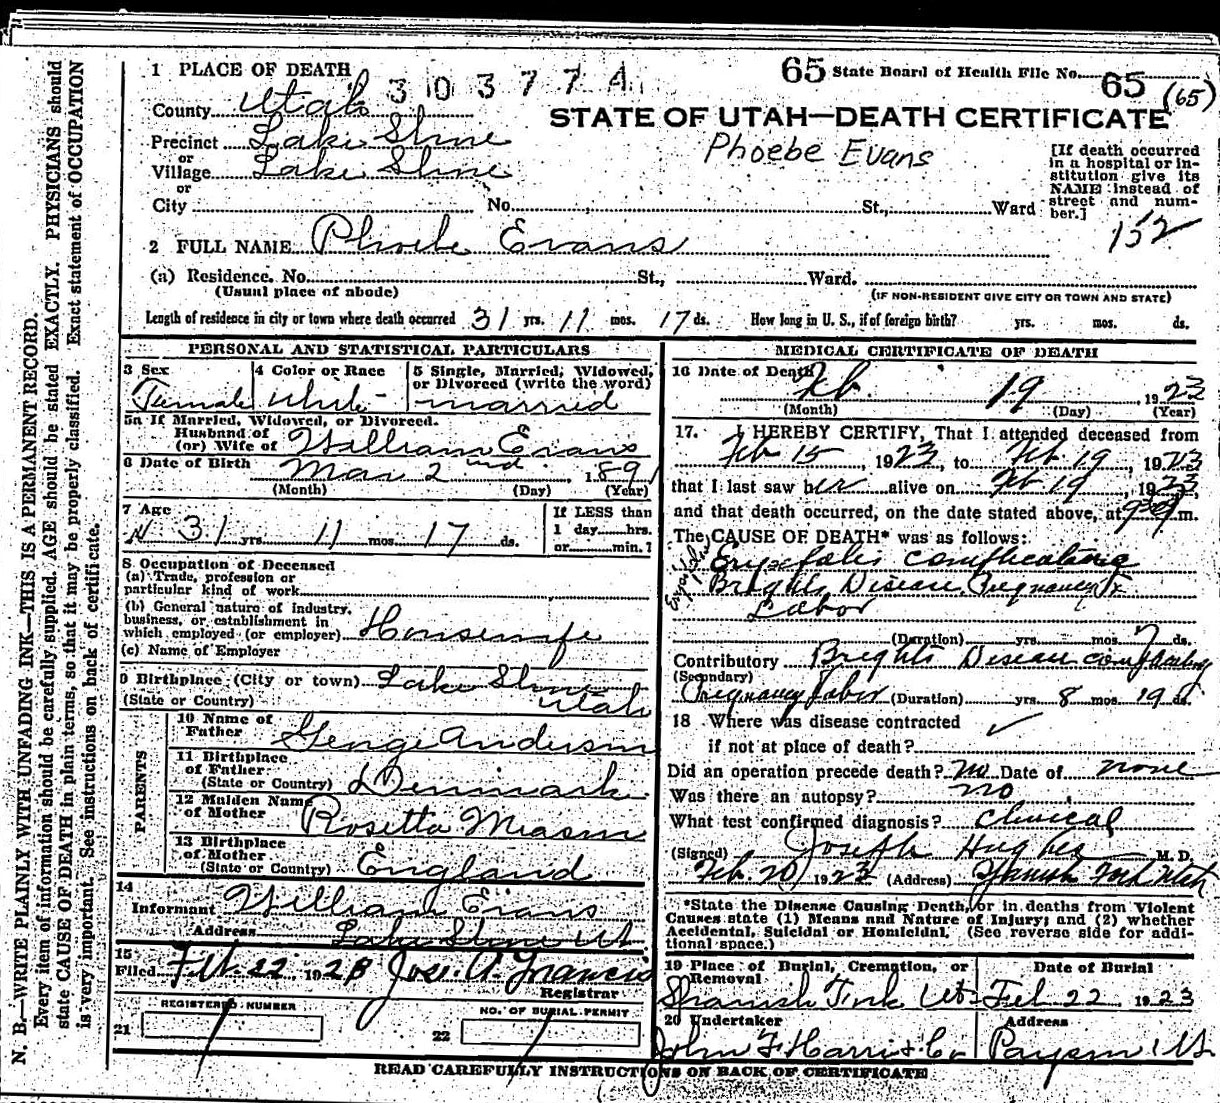 N. B.—WRITE PLAINLY WITH UNFADING INK—THIS IS A PERMANENT RECORD.
Every item of information should be carefully supplied. AGE should be stated EXACTLY. PHYSICIANS should
state CAUSE OF DEATH in plain terms, so that it may be properly classified. Exact statement of OCCUPATION
is very important. See instructions on back of certificate.
1 PLACE OF DEATH
65 State Board of Health File No. 65 (65)
County Utah 30377A
STATE OF UTAH—DEATH CERTIFICATE
Precinct Lake Shore
Phoebe Evans
or
Village Lake Shore
or
City No. St., Ward
[If death occurred
in a hospital or in-
stitution give its
NAME instead of
street and num-
ber.]
152
2 FULL NAME Phoebe Evans
(a) Residence. No. St., Ward.
(Usual place of abode) (IF NON-RESIDENT GIVE CITY OR TOWN AND STATE)
Length of residence in city or town where death occurred 31 yrs. 11 mos. 17 ds. How long in U. S., if of foreign birth? yrs. mos. ds.
PERSONAL AND STATISTICAL PARTICULARS
3 Sex 4 Color or Race 5 Single, Married, Widowed,
or Divorced (write the word)
Female White married
5a If Married, Widowed, or Divorced.
Husband of
(or) Wife of William Evans
6 Date of Birth Mar 2nd 1891
(Month) (Day) (Year)
7 Age If LESS than
31 yrs. 11 mos. 17 ds. 1 day hrs.
or min.?
8 Occupation of Deceased
(a) Trade, profession or
particular kind of work
(b) General nature of industry,
business, or establishment in
which employed (or employer) Housewife
(c) Name of Employer
9 Birthplace (City or town) Lake Shore
(State or Country) Utah
PARENTS
10 Name of
Father George Anderson
11 Birthplace
of Father
(State or Country) Denmark
12 Maiden Name
of Mother Rosetta Mason
13 Birthplace
of Mother
(State or Country) England
14
Informant William Evans
Address Lake Shore Ut.
15
Filed Feb. 22 1923 Jos. A. Francis
Registrar
REGISTERED NUMBER NO. OF BURIAL PERMIT
21 22
MEDICAL CERTIFICATE OF DEATH
16 Date of Death Feb. 19 1923
(Month) (Day) (Year)
17. I HEREBY CERTIFY, That I attended deceased from
Feb 15, 1923, to Feb. 19, 1923
that I last saw her alive on Feb 19, 1923,
and that death occurred, on the date stated above, at m.
The CAUSE OF DEATH* was as follows:
Erysipelas complicating
Brights Disease, Pregnancy &
Labor
(Duration) yrs. mos. 7 ds.
Contributory Brights Disease complicating
(Secondary)
Pregnancy Labor (Duration) yrs. 8 mos. 19 ds.
18 Where was disease contracted
if not at place of death?
Did an operation precede death? No Date of none
Was there an autopsy? no
What test confirmed diagnosis? clinical
(Signed) Joseph Hughes M. D.
Feb. 20, 1923 (Address) Spanish Fork Utah
*State the Disease Causing Death, or in deaths from Violent
Causes state (1) Means and Nature of Injury; and (2) whether
Accidental, Suicidal or Homicidal. (See reverse side for addi-
tional space.)
19 Place of Burial, Cremation, or Date of Burial
Removal
Spanish Fork Ut. Feb 22 1923
20 Undertaker Address
John F Harris & Co Payson Ut.
READ CAREFULLY INSTRUCTIONS ON BACK OF CERTIFICATE